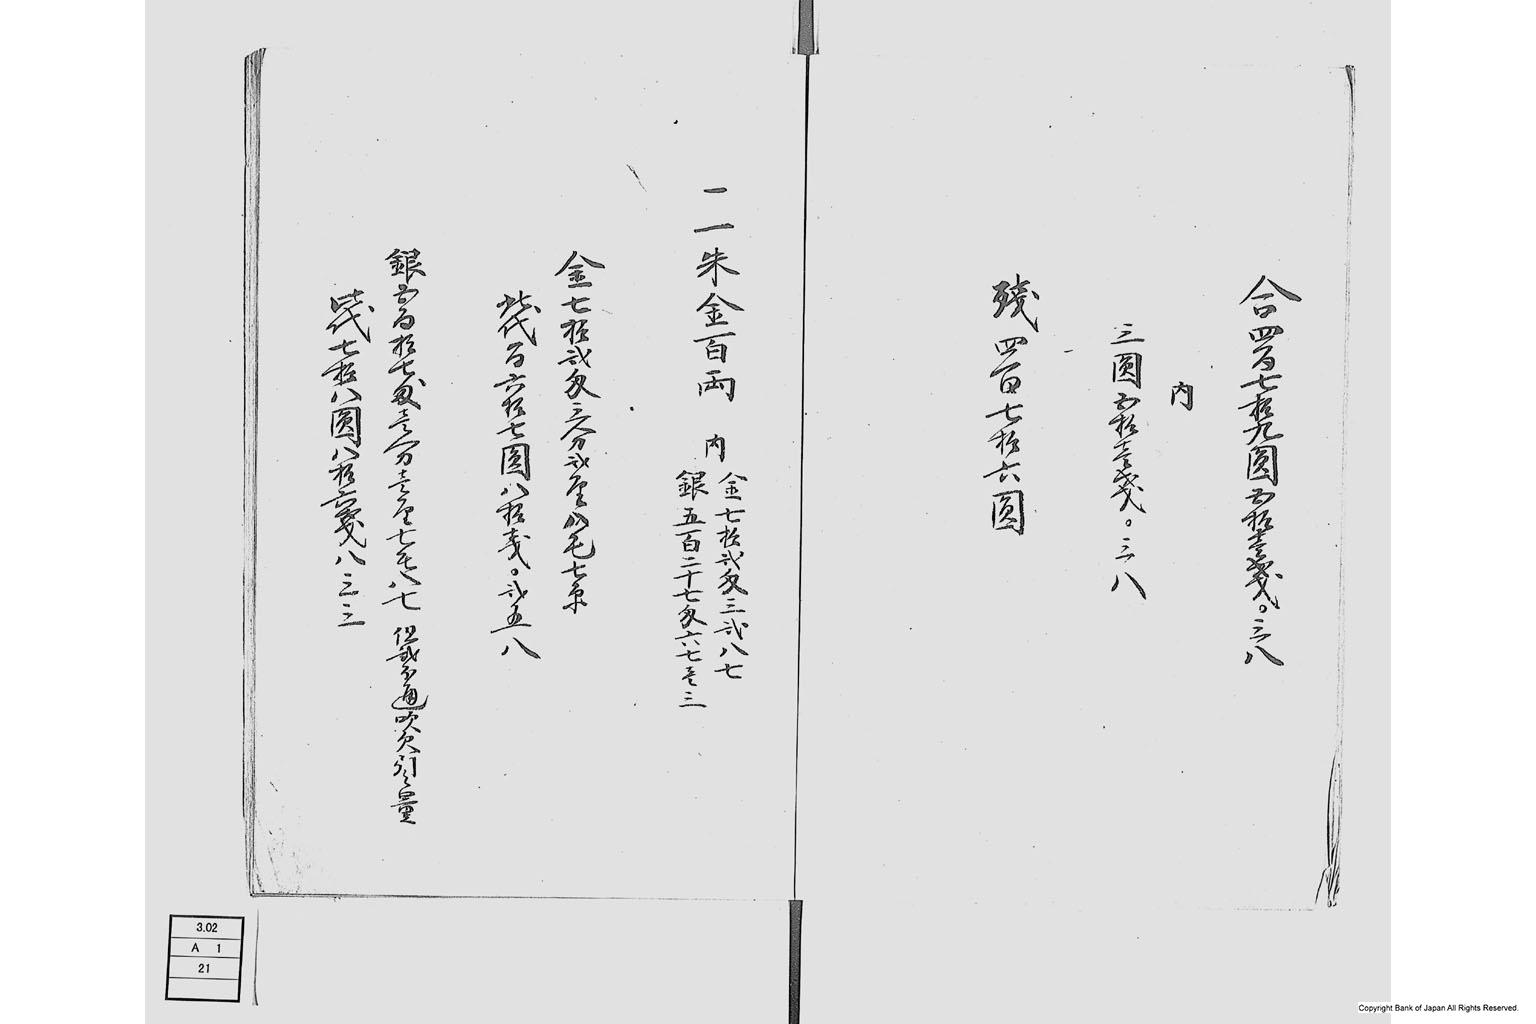 合四百七拾九圓五拾壱戔〇三八
内
三圓五拾壱戔〇三八
残四百七拾六圓
一一朱金百両 内
金七拾弐匁三弐八七
銀五百二十七匁六七壱三
金七拾弐匁三分弐厘八毛七糸
此代百六拾七圓八拾戔〇弐五八
銀五百拾七匁壱分壱厘七毛八七 但 不通吹欠引之量
此代七拾八圓八拾六戔八三三
3.02
A 1
21
Copyright Bank of Japan All Rights Reserved.